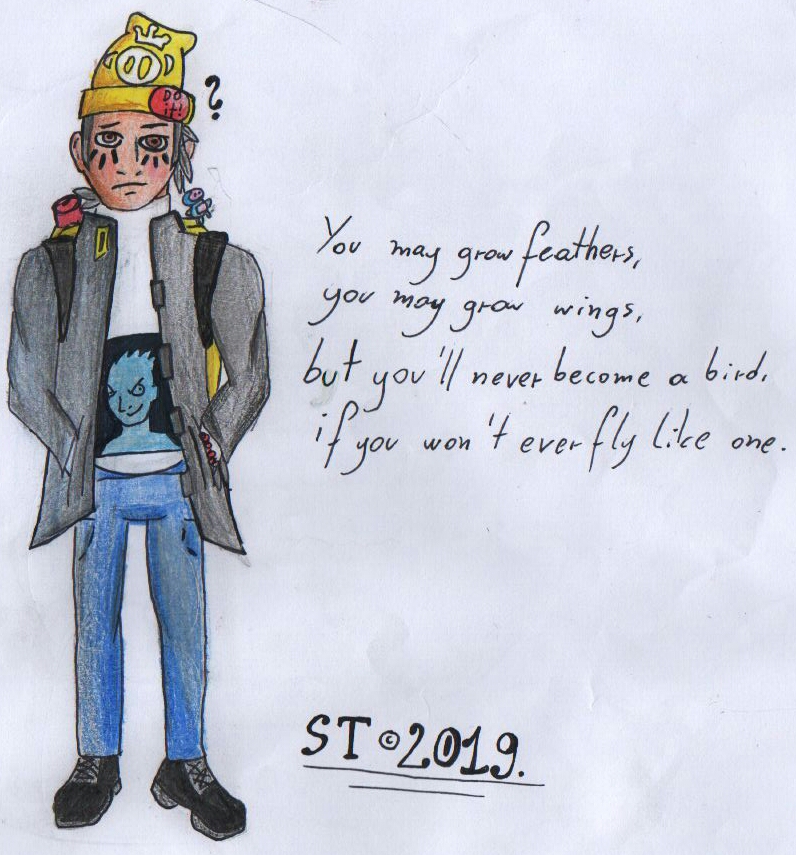 DO
it!
?
You may grow feathers,
you may grow wings,
but you'll never become a bird,
if you won't ever fly like one.
ST©2019.